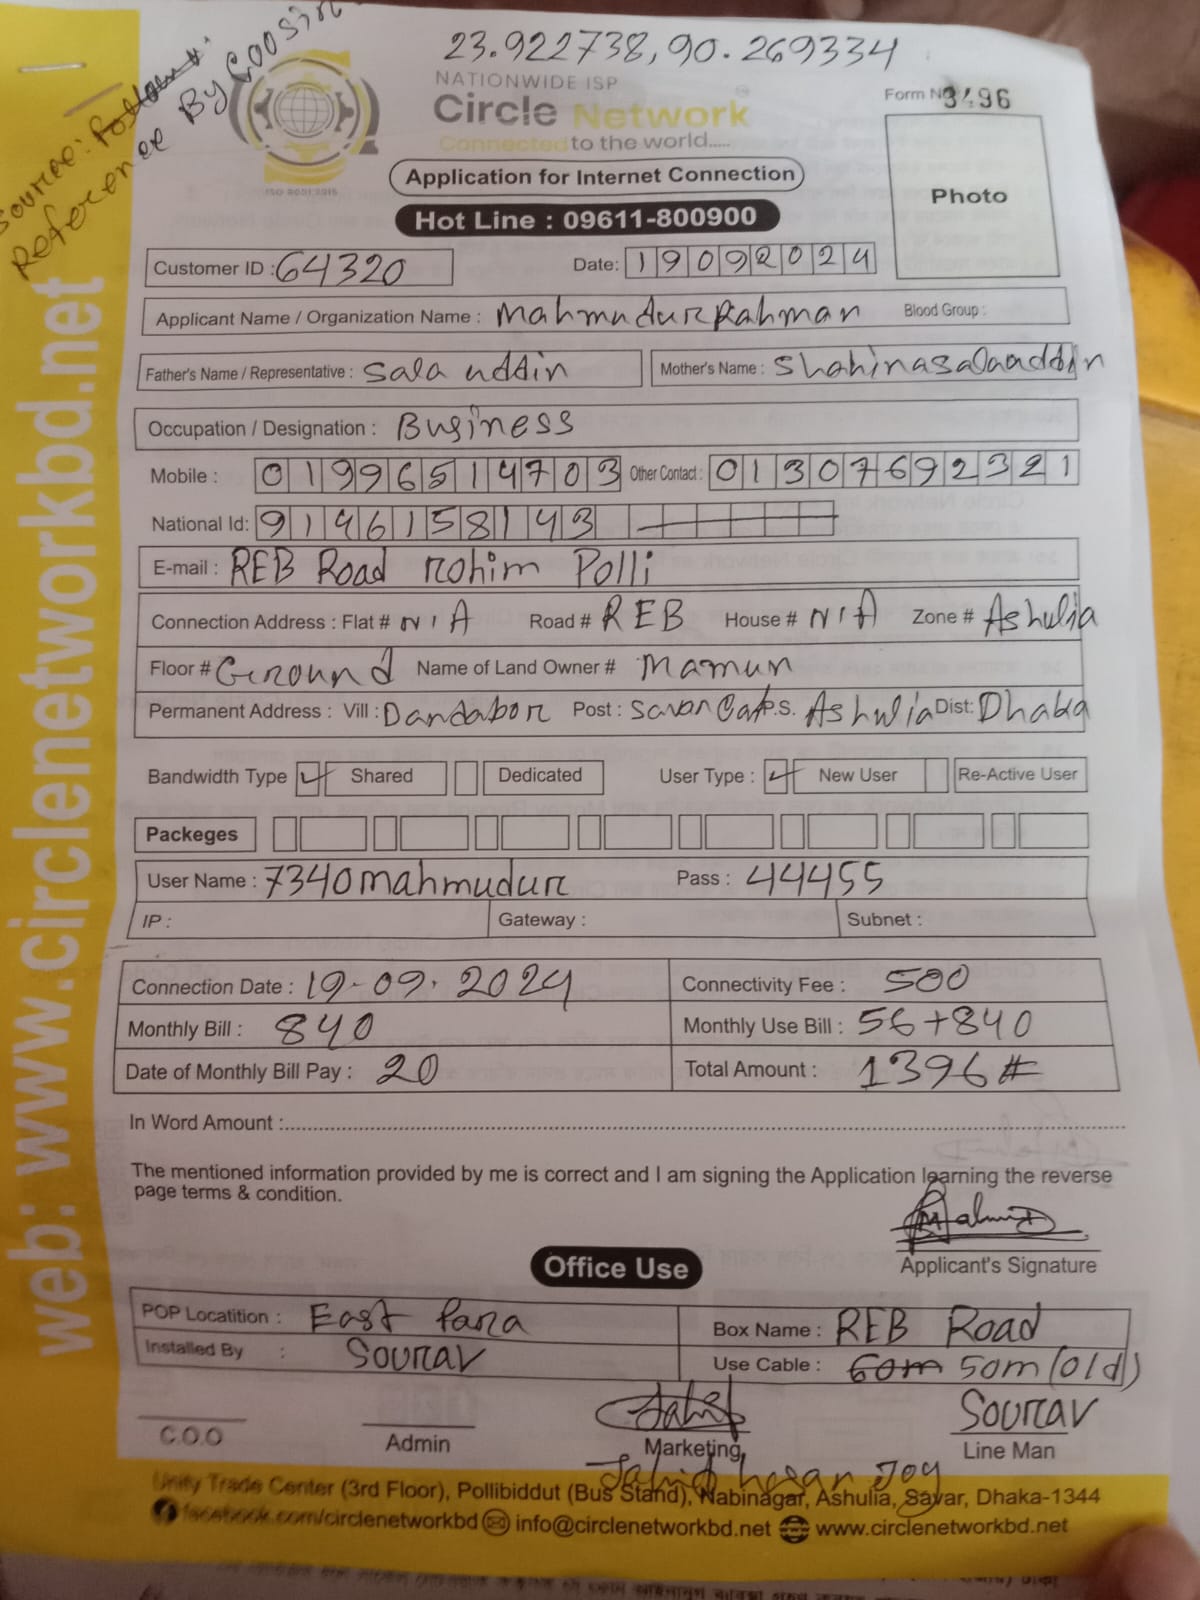 23.922738,90.269334
Source:
Reference By Coosin
NATIONWIDE ISP
Circle Network
Connected to the world.....
ISO 9001:2015
Form No 3496
Photo
Application for Internet Connection
Hot Line : 09611-800900
Customer ID : 64320 Date: 19092024
Applicant Name / Organization Name : Mahmudur Rahman Blood Group :
Father's Name / Representative : Sala uddin Mother's Name : Shahinasalaaddin
Occupation / Designation : Business
Mobile : 01996514703 Other Contact : 01307692321
National Id: 9146158143
E-mail : REB Road Rohim Polli
Connection Address : Flat # N/A Road # REB House # N/A Zone # Ashulia
Floor # Ground Name of Land Owner # Mamun
Permanent Address : Vill : Dandabor Post : Savar Cat P.S. Ashulia Dist: Dhaka
Bandwidth Type ✓ Shared Dedicated User Type : ✓ New User Re-Active User
Packeges
User Name : 7340mahmudur Pass : 44455
IP : Gateway : Subnet :
Connection Date : 19-09.2024 Connectivity Fee : 500
Monthly Bill : 840 Monthly Use Bill : 56+840
Date of Monthly Bill Pay : 20 Total Amount : 1396#
In Word Amount :
The mentioned information provided by me is correct and I am signing the Application learning the reverse
page terms & condition.
Applicant's Signature
Office Use
POP Locatition : East Para Box Name : REB Road
Installed By : Sourav Use Cable : 60m 50m (old)
Sourav
C.O.O Admin Marketing Line Man
Jahid hasan Joy
Unity Trade Center (3rd Floor), Pollibiddut (Bus Stand), Nabinagar, Ashulia, Savar, Dhaka-1344
facebook.com/circlenetworkbd info@circlenetworkbd.net www.circlenetworkbd.net
web: www.circlenetworkbd.net